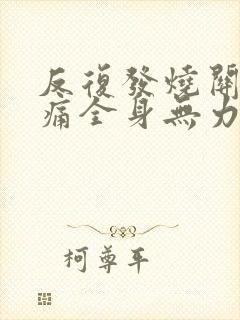 反復發燒關
痛全身無力
柯尊平